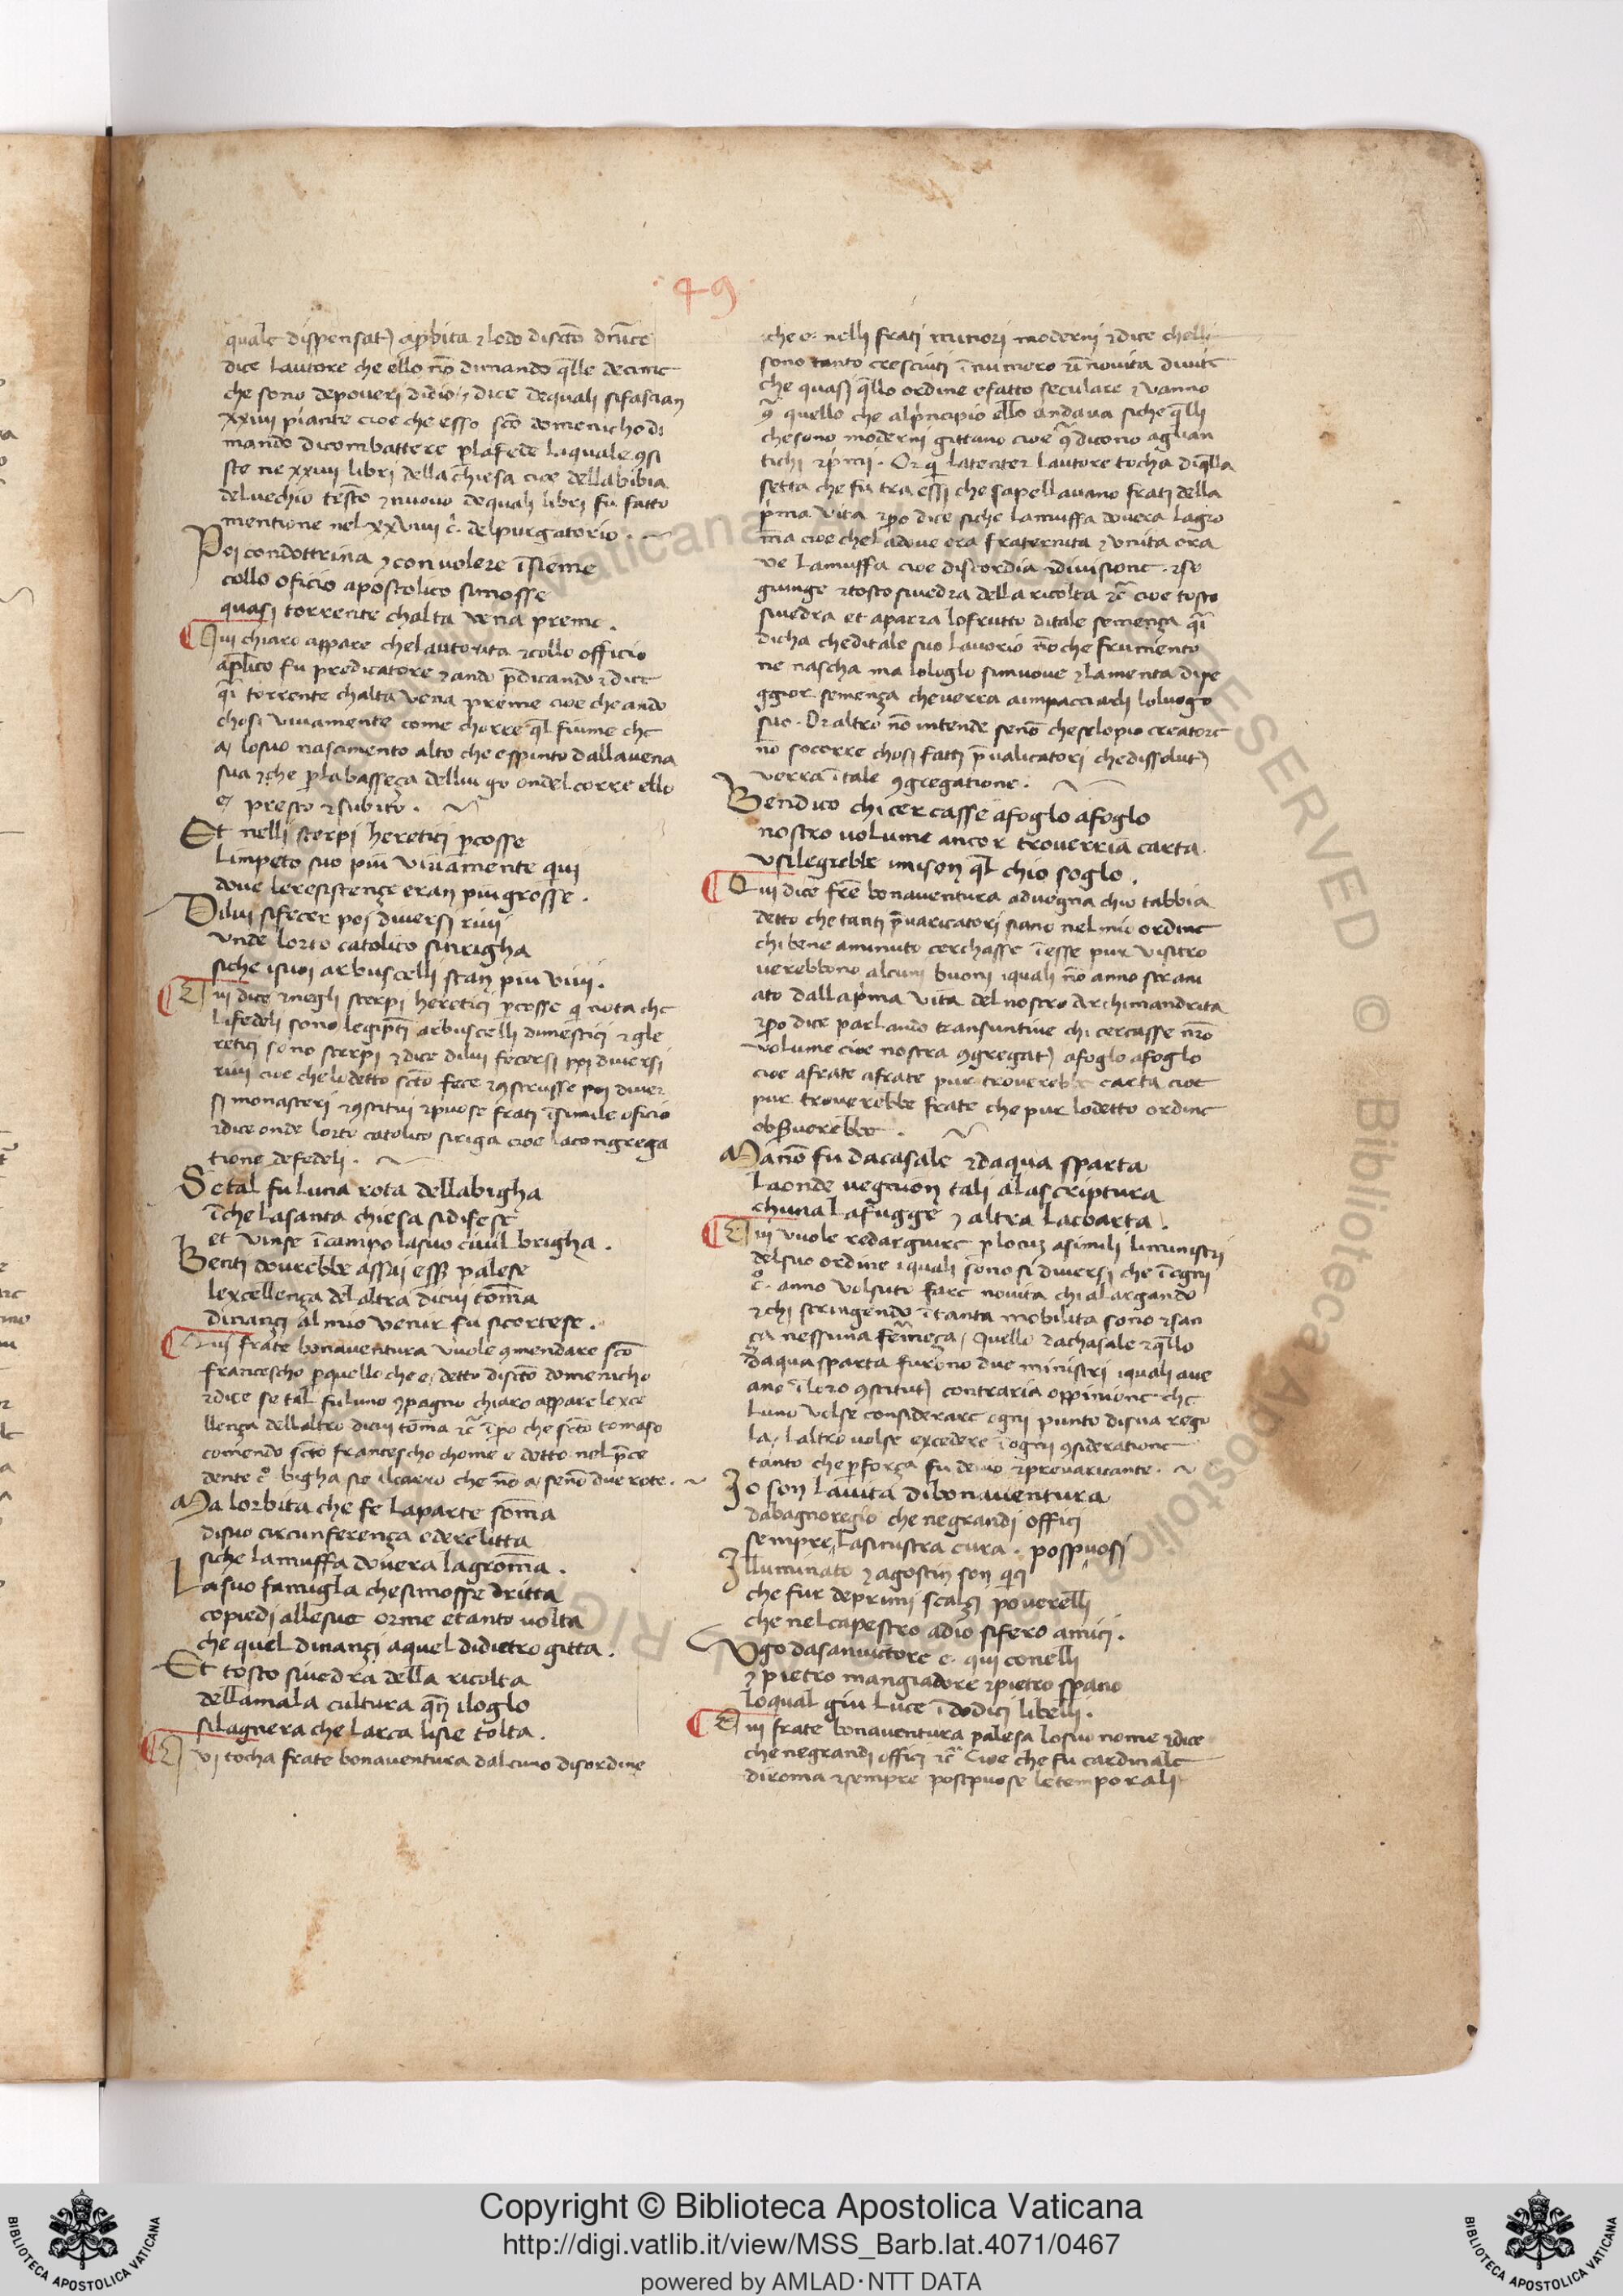 49
quale dispensat) aprbita ⁊ lodo discto dnice
dice lautore che ello no dimando qlle decime
che sono depoveri didio ⁊ dice dequali sifascian
xxiiii piante cioe che esso sco domenicho di
mando dicombattere plafede laquale 9si
ste ne xxiiii libri della chiesa cioe dellabibia
delvechio testo ⁊ nuovo dequali libri fu fatto
mentione nel xxviiii c. delpurgatorio.
Poi condottrina ⁊ con volere īsieme
collo oficio apostolico simosse
quasi torrente chalta vena preme.
Qui chiaro appare chelautorita ⁊ collo officio
aplico fu predicatore ⁊ ando pdicando ⁊ dice
qi torrente chalta vena preme cioe che ando
chosi vivamente come chorre ql fiume che
a losuo nascimento alto che espinto dallavena
sua ⁊ che plabasseça dellui go ondel corre ello
e presto ⁊ subito.
Et nelli sterpi heretici pcosse
Limpeto suo piu vivamente qui
dove leresistençe eran piu grosse.
Dilui sifecer poi diversi rivi
unde lorto catolico sirigha
siche isuoi arbuscelli stan piu vivi.
Qui dice ⁊ negli sterpi heretici pcosse q nota che
lifedeli sono legipti arbuscelli dimestici ⁊ gle
retici sono sterpi ⁊ dice dilui fecersi poi diversi
rivi cioe che lodetto scto fece ⁊ 9strusse poi diver
si monasteri ⁊ 9stitui ⁊ puose frati īsimile oficio
⁊ dice onde lorto catolico siriga cioe lacongrega
tione defedeli.
Se tal fu luna rota dellabigha
īche lasanta chiesa sidifese
et vinse īcampo lasuo civil brigha.
Benti dovrebbe assai esser palese
lexcellença delaltra dicui toma
dinançi al mio venir fu sicortese.
Qui frate bonaventura vuole 9mendare sco
francescho pquello che e detto discto domenicho
⁊ dice se tal fu luno 9pagno chiaro appare lexce
llença dellaltro dicui toma ⁊c īpo che scto tomaso
comendo scto francescho chome e detto nel pce
dente co bigha sie ilcarro che no a seno due rote.
Ma lorbita che fe laparte soma
disuo circunferença ederelitta
siche lamuffa dovera lagroma.
Lasuo famigla chesimosse dritta
copiedi allesue orme etanto volta
che quel dinançi aquel didietro gitta.
Et tosto sivedra della ricolta
dellamala cultura qn iloglo
silagnera che larca lisie tolta.
Qui tocha frate bonaventura dalcuno disordine
che e nelli frati minori moderni ⁊ dice chelli
sono tanto cresciuti ī numero
che quasi qllo ordine efatto seculare ⁊ vanno
9 quello che alprincipio ello andava siche qlli
chesono moderni gittano cioe 9 dicono aglian
tichi ⁊ pmi. Or q latenter lautore tocha diqlla
setta che fu tra essi che sapellavano frati della
pma vita ⁊ po dice siche lamuffa dovera lagro
ma cioe chel adove era fraternita ⁊ unita ora
ve lamuffa cioe discordia ⁊ divisione. ⁊ so
giunge ⁊ tosto sivedra della ricolta ⁊c cioe tosto
sivedra et aparra lofrutto ditale semença qi
dicha cheditale suo lavorio no che frumento
ne nascha ma lologlo simuove ⁊ lamenta dipe
ggior semença cheverra aimpacciarli loluogo
suo. Or altro no intende seno cheselopio creatore
no socorre chosi fatti pvalicatori chedissolut)
verra ī tale 9gregatione.
Ben dico chi cercasse afoglo afoglo
nostro volume ancor troverria carta
usilegrebbe imison ql chio soglo.
Qui dice fre bonaventura advegna chio tabbia
detto che tanti pvaricatori siano nel mio ordine
chi bene aminuto cerchasse ī esse pur visitro
verebbono alcuni buoni iquali no anno strani
ato dallapma vita del nostro Archimandrita
⁊ po dice parlando transuntive chi cercasse nro
volume cioe nostra 9gregat) afoglo afoglo
cioe afrate afrate pur troverebbe carta cioe
pur troverebbe frate che pur lodetto ordine
observerebbe.
Ma no fu dacasale ⁊ daqua sparta
laonde vegnon tali alascriptura
chuna lafugge ⁊ altra lacoarta.
Qui vuole redarguire p locum asimili liministri
delsuo ordine iquali sono si diversi che ī ogni
c. anno volsuto fare novita chi alargando
⁊ chi stringendo ītanta mobilita sono ⁊ san
ça nessuna fermeça, Quello dachasale ⁊ qllo
daqua sparta furono due ministri iquali ave
ano ī loro 9stitut) contraria oppinione che
luno volse considerare ogni punto disua rego
la, laltro volse excedere ī ogni 9sideratione
tanto che pforça fu devio ⁊ prevaricante.
Io son lavita dibonaventura
dabagnoregio che negrandi offici
sempre lasinistra cura. pospuosi
Illuminato ⁊ agostin son qici
che fur deprimi scalçi poverelli
che nel capestro adio sifero amici.
Ugo dasanvictore e. qui conelli
⁊ pietro mangiadore ⁊ pietro spano
loqual giu luce ī dodici libelli.
Qui frate bonaventura palesa losuo nome ⁊ dice
che negrandi offici ⁊c Cioe che fu cardinale
diroma ⁊ sempre postpuose letemporali
BIBLIOTECA APOSTOLICA VATICANA
Copyright © Biblioteca Apostolica Vaticana
http://digi.vatlib.it/view/MSS_Barb.lat.4071/0467
powered by AMLAD·NTT DATA
BIBLIOTECA APOSTOLICA VATICANA